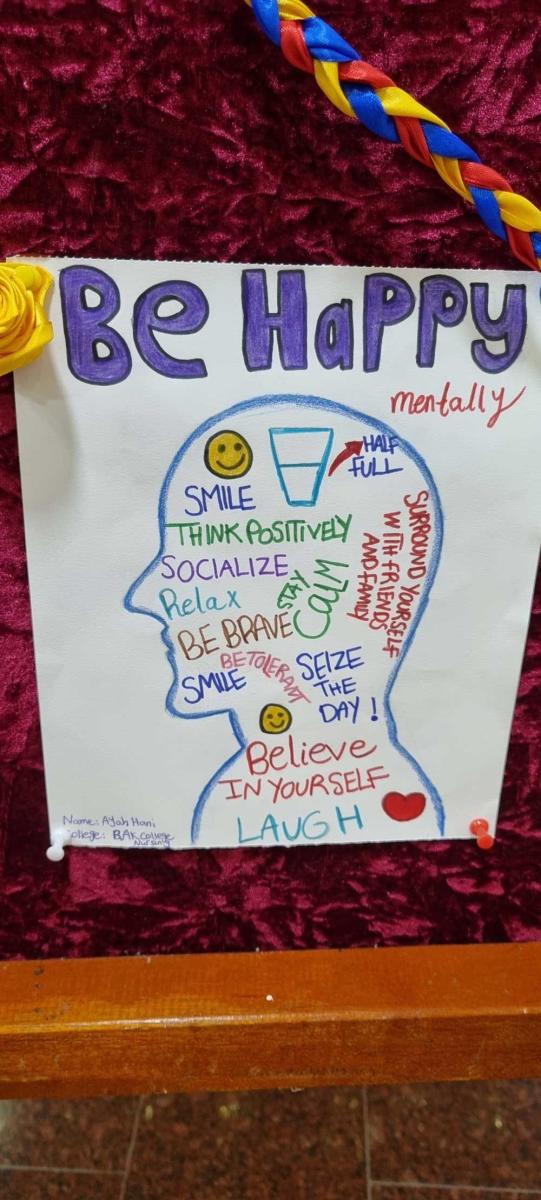 Be Happy
mentally
HALF
FULL
SMILE
THINK POSITIVELY
SOCIALIZE
Relax
BE BRAVE
STAY
CALM
SURROUND YOURSELF
WITH FRIENDS
AND FAMILY
BE TOLERANT
SMILE
SEIZE
THE
DAY !
Believe
IN YOURSELF
LAUGH
Name: Ayah Hani
College: BAK College
Nursing